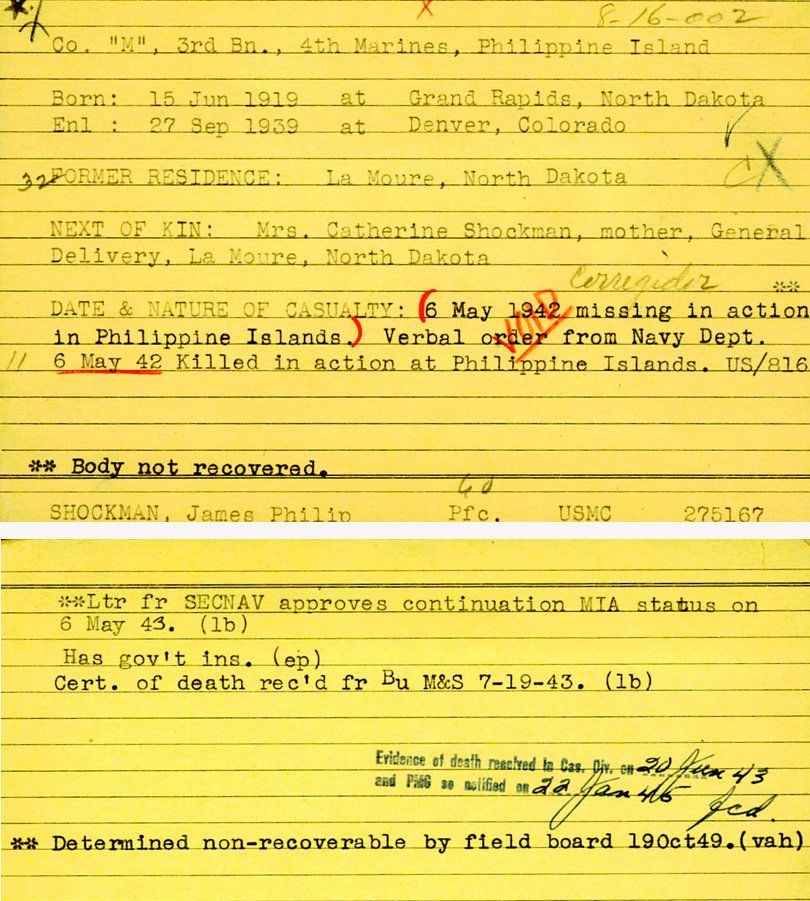 8-16-002
Co. "M", 3rd Bn., 4th Marines, Philippine Island
Born: 15 Jun 1919 at Grand Rapids, North Dakota
Enl : 27 Sep 1939 at Denver, Colorado
32 FORMER RESIDENCE: La Moure, North Dakota
NEXT OF KIN: Mrs. Catherine Shockman, mother, General
Delivery, La Moure, North Dakota
Corregidor **
DATE & NATURE OF CASUALTY: (6 May 1942 missing in action
in Philippine Islands.) Verbal order from Navy Dept.
VOID
11 6 May 42 Killed in action at Philippine Islands. US/816
** Body not recovered.
SHOCKMAN, James Philip Pfc. USMC 275167
**Ltr fr SECNAV approves continuation MIA status on
6 May 43. (lb)
Has gov't ins. (ep)
Cert. of death rec'd fr Bu M&S 7-19-43. (lb)
Evidence of death received in Cas. Div. on 20 Jun 43
and PMG so notified on 22 Jan 45
** Determined non-recoverable by field board 19Oct49.(vah)